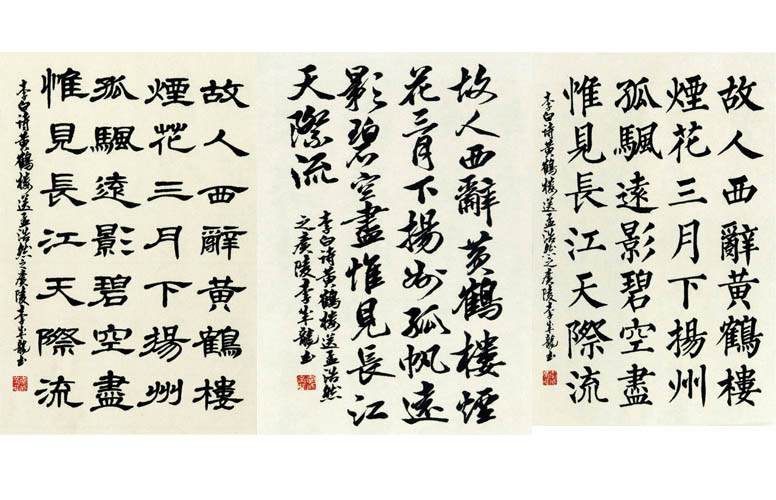 故人西辭黃鶴樓
煙花三月下揚州
孤颿遠影碧空盡
惟見長江天際流
李白诗黃鶴楼送孟浩然之廣陵李龍书
故人西辭黃鶴樓煙
花三月下揚州孤帆遠
影碧空盡惟見長江
天際流
李白诗黃鶴楼送孟浩然
之廣陵李龍书
故人西辭黃鶴樓
煙花三月下揚州
孤颿遠影碧空盡
惟見長江天際流
李白诗黃鶴楼送孟浩然之廣陵李龍书